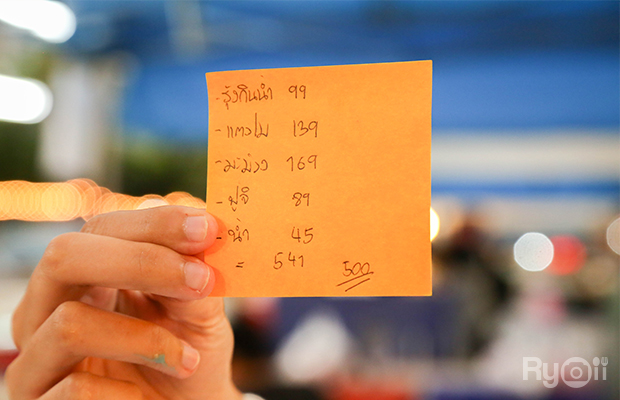 - รุ้งกินน้ำ 99
- แตงโม 139
- มะม่วง 169
- ฟูจิ 89
- น้ำ 45
= 541 500
Ryoii